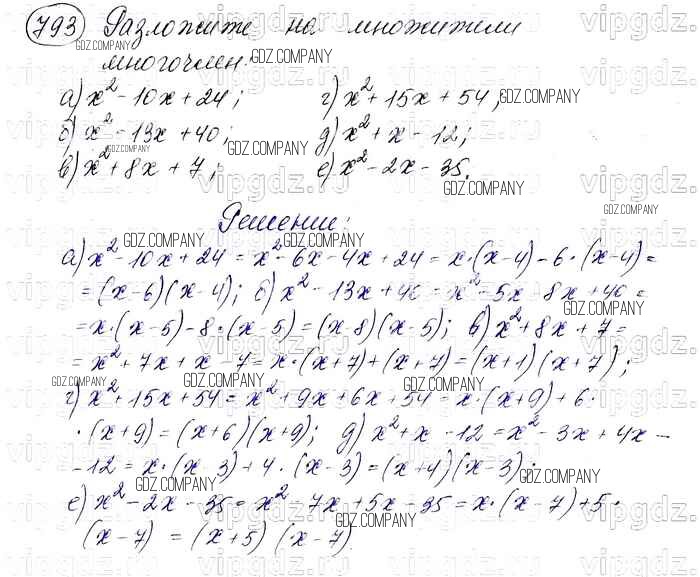 793 Разложите на множители
многочлен:
а) x² - 10x + 24; г) x² + 15x + 54;
б) x² - 13x + 40; д) x² + x - 12;
в) x² + 8x + 7; е) x² - 2x - 35.
Решении:
а) x² - 10x + 24 = x² - 6x - 4x + 24 = x·(x-4) - 6·(x-4) =
= (x-6)(x-4); б) x² - 13x + 40 = x² - 5x - 8x + 40 =
= x·(x-5) - 8·(x-5) = (x-8)(x-5); в) x² + 8x + 7 =
= x² + 7x + x + 7 = x·(x+7) + (x+7) = (x+1)(x+7);
г) x² + 15x + 54 = x² + 9x + 6x + 54 = x·(x+9) + 6·
·(x+9) = (x+6)(x+9); д) x² + x - 12 = x² - 3x + 4x -
-12 = x·(x-3) + 4·(x-3) = (x+4)(x-3);
е) x² - 2x - 35 = x² - 7x + 5x - 35 = x·(x-7) + 5·
(x-7) = (x+5)(x-7)
GDZ.COMPANY
vipgdz.ru